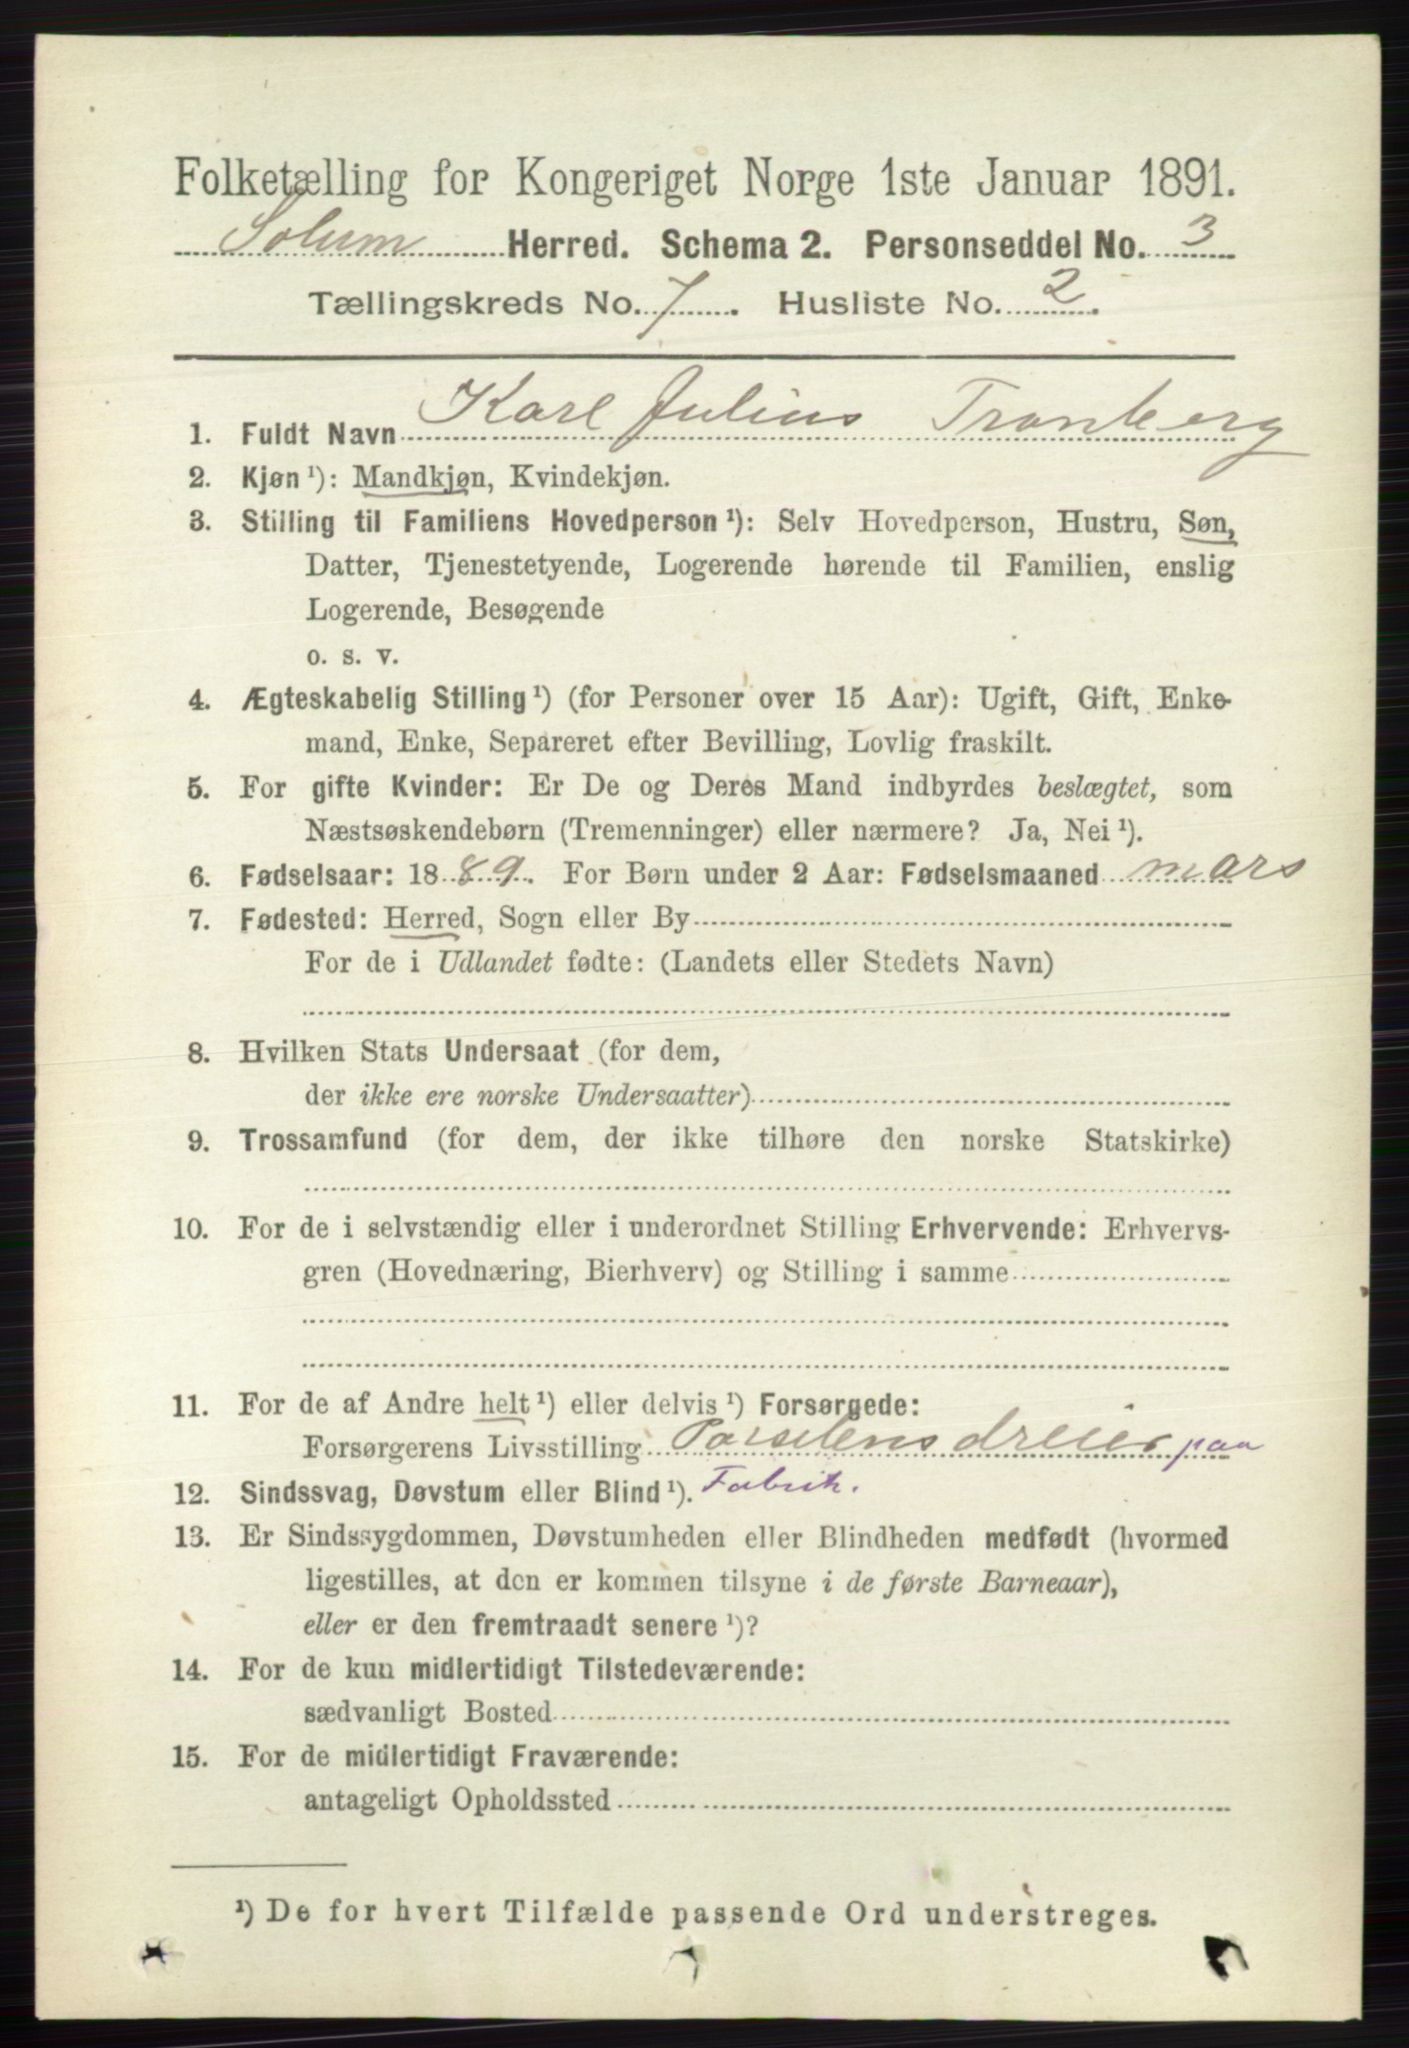 Folketælling for Kongeriget Norge 1ste Januar 1891.
Solum Herred. Schema 2. Personseddel No. 3
Tællingskreds No. 7. Husliste No. 2.
1. Fuldt Navn Karl Julius Tranberg
2. Kjøn ¹): Mandkjøn, Kvindekjøn.
3. Stilling til Familiens Hovedperson ¹): Selv Hovedperson, Hustru, Søn,
Datter, Tjenestetyende, Logerende hørende til Familien, enslig
Logerende, Besøgende
o. s. v.
4. Ægteskabelig Stilling ¹) (for Personer over 15 Aar): Ugift, Gift, Enke-
mand, Enke, Separeret efter Bevilling, Lovlig fraskilt.
5. For gifte Kvinder: Er De og Deres Mand indbyrdes beslægtet, som
Næstsøskendebørn (Tremenninger) eller nærmere? Ja, Nei ¹).
6. Fødselsaar: 1889. For Børn under 2 Aar: Fødselsmaaned mars
7. Fødested: Herred, Sogn eller By
For de i Udlandet fødte: (Landets eller Stedets Navn)
8. Hvilken Stats Undersaat (for dem,
der ikke ere norske Undersaatter)
9. Trossamfund (for dem, der ikke tilhøre den norske Statskirke)
10. For de i selvstændig eller i underordnet Stilling Erhvervende: Erhvervs-
gren (Hovednæring, Bierhverv) og Stilling i samme
11. For de af Andre helt ¹) eller delvis ¹) Forsørgede:
Forsørgerens Livsstilling Porselensdreier paa
12. Sindssvag, Døvstum eller Blind ¹). Fabrik.
13. Er Sindssygdommen, Døvstumheden eller Blindheden medfødt (hvormed
ligestilles, at den er kommen tilsyne i de første Barneaar),
eller er den fremtraadt senere ¹)?
14. For de kun midlertidigt Tilstedeværende:
sædvanligt Bosted
15. For de midlertidigt Fraværende:
antageligt Opholdssted
¹) De for hvert Tilfælde passende Ord understreges.